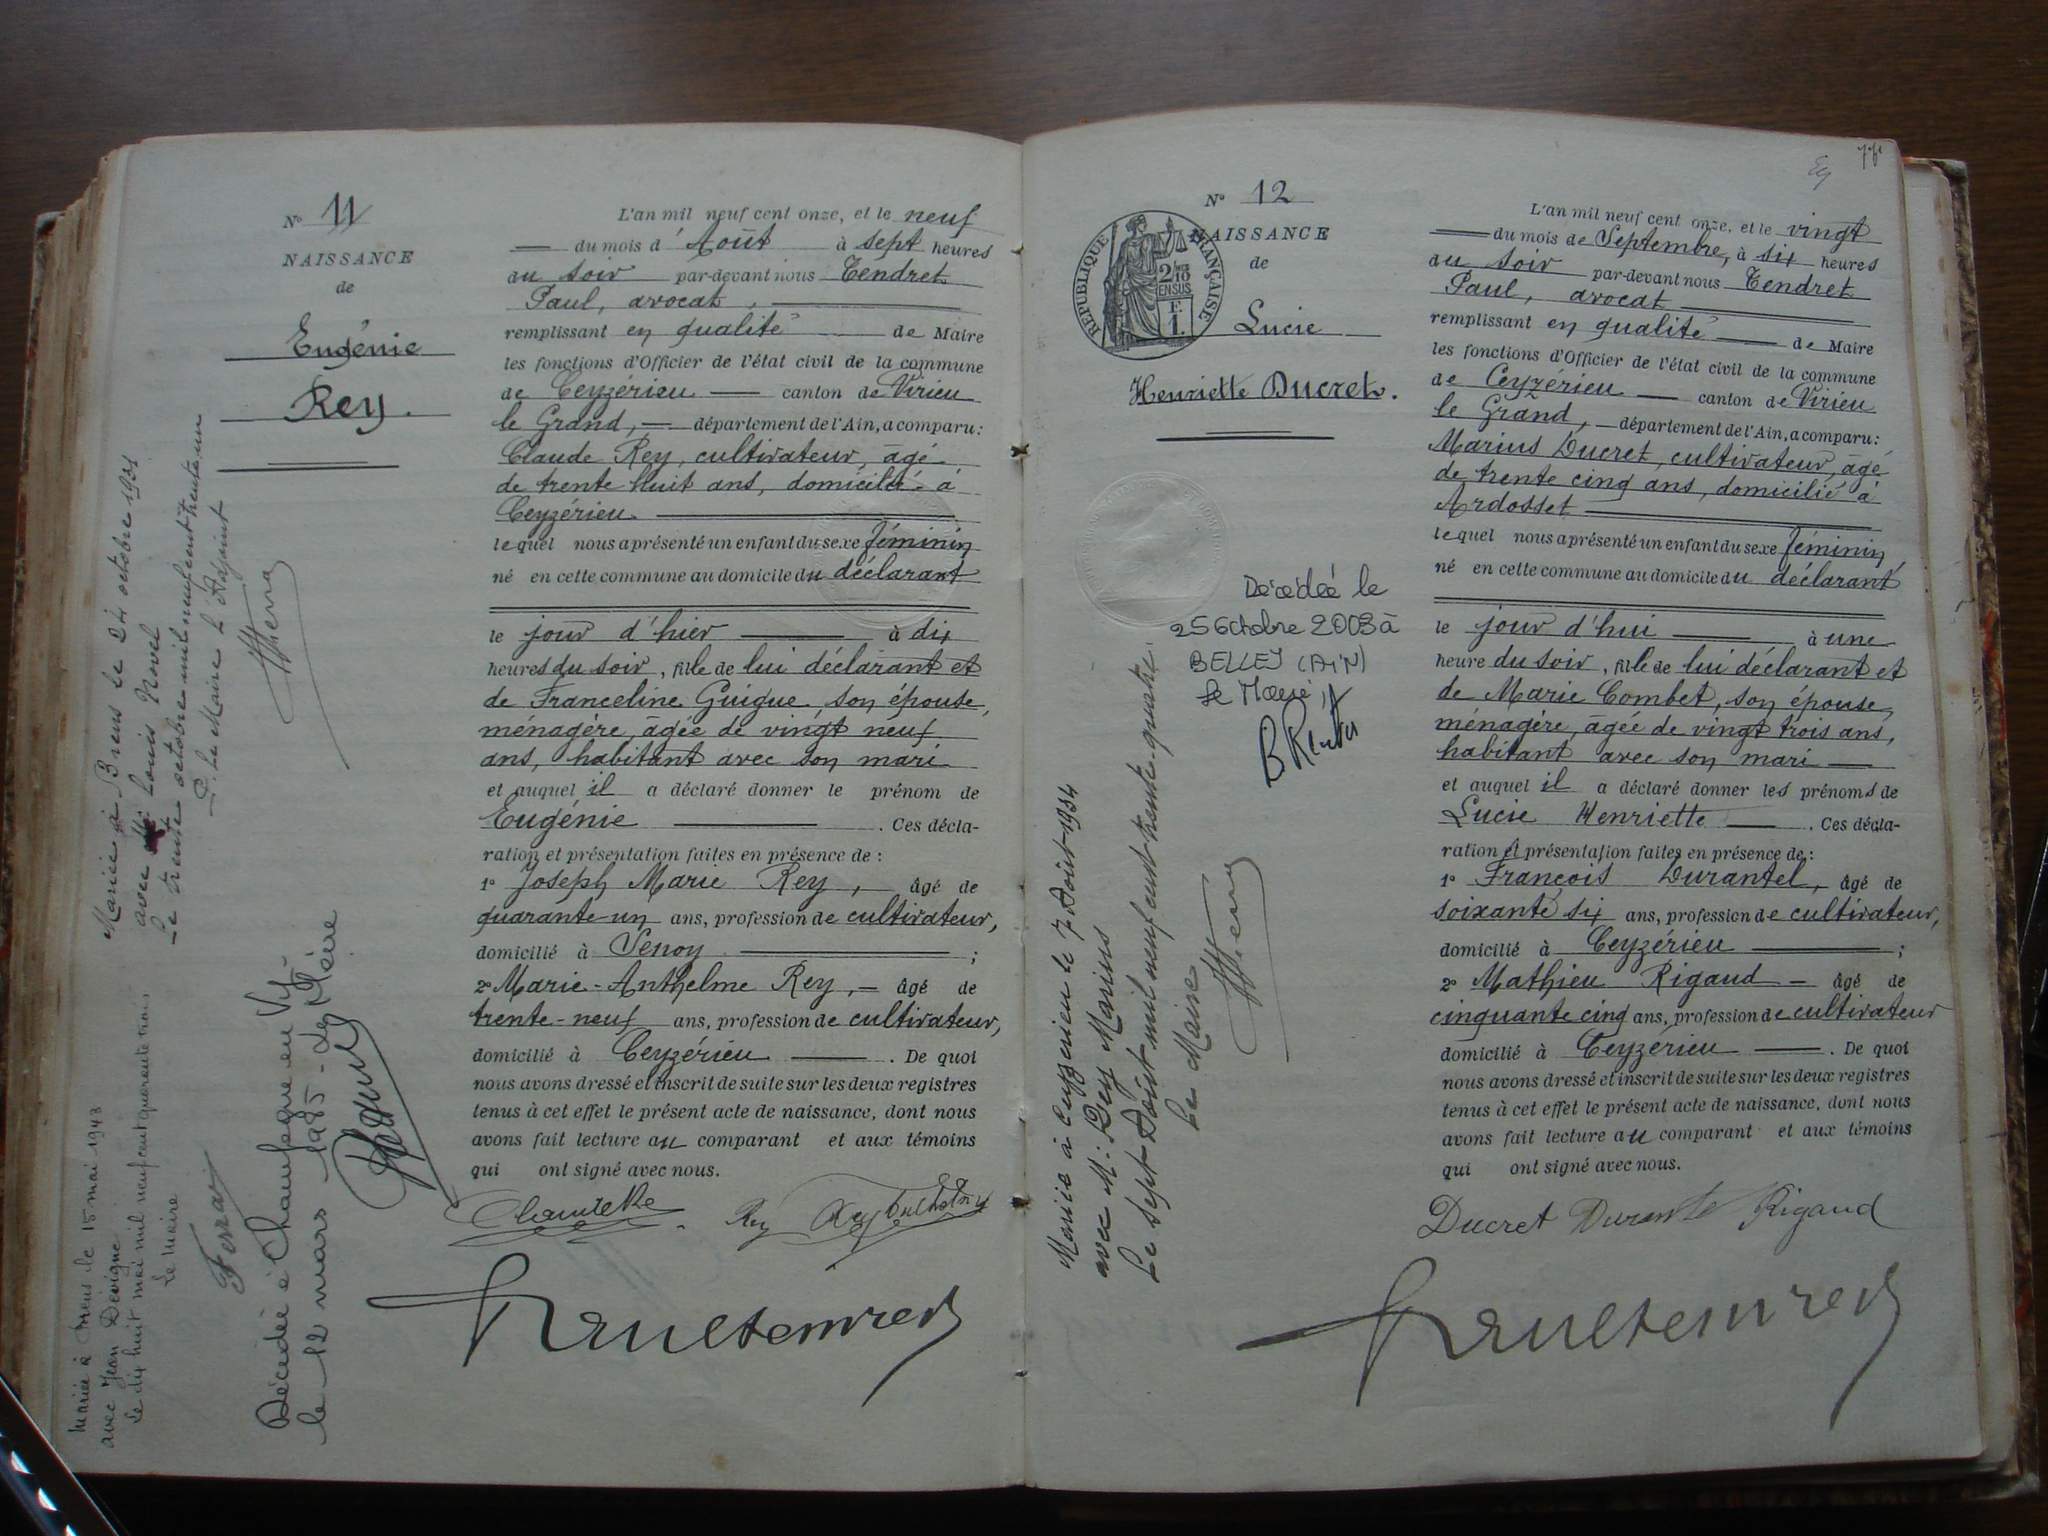 N° 11
NAISSANCE
de
Eugénie
Rey.
L'an mil neuf cent onze, et le neuf
du mois d'Août à sept heures
au soir par-devant nous Tendret
Paul, avocat,
remplissant en qualité de Maire
les fonctions d'Officier de l'état civil de la commune
de Ceyzérieu canton de Virieu
le Grand, département de l'Ain, a comparu:
Claude Rey, cultivateur, âgé
de trente huit ans, domicilié à
Ceyzérieu
lequel nous a présenté un enfant du sexe féminin
né en cette commune au domicile du déclarant
le jour d'hier à dix
heures du soir, fille de lui déclarant et
de Franceline Guigue, son épouse,
ménagère, âgée de vingt neuf
ans, habitant avec son mari
et auquel il a déclaré donner le prénom de
Eugénie. Ces décla-
ration et présentation faites en présence de :
1° Joseph Marie Rey, âgé de
quarante-un ans, profession de cultivateur,
domicilié à ;
2° Marie-Anthelme Rey, âgé de
trente-neuf ans, profession de cultivateur,
domicilié à Ceyzérieu. De quoi
nous avons dressé et inscrit de suite sur les deux registres
tenus à cet effet le présent acte de naissance, dont nous
avons fait lecture au comparant et aux témoins
qui ont signé avec nous.
Rey
Mariée à Brens le 24 octobre 1931
avec M: Louis Novel
Le trente octobre mil neuf cent trente un
P. le Maire L'Adjoint
Mariée à Brens le 15 mai 1943
avec Jean
Le dix huit mai mil neuf cent quarante trois
Le Maire
Décédée à
le 12 mars 1985 - Le Maire
N° 12
NAISSANCE
de
Lucie
Henriette Ducret.
RÉPUBLIQUE FRANÇAISE
2/10
EN SUS
F.
1.
Décédée le
25 Octobre 2003 à
BELLEY (AIN)
Le Maire
Mariée à Ceyzérieu le 7 Août 1934
avec M: Rey Marius
Le sept Août mil neuf cent trente-quatre.
Le Maire
L'an mil neuf cent onze, et le vingt
du mois de Septembre, à six heures
au soir par-devant nous Tendret
Paul, avocat
remplissant en qualité de Maire
les fonctions d'Officier de l'état civil de la commune
de Ceyzérieu canton de Virieu
le Grand, département de l'Ain, a comparu:
Marius Ducret, cultivateur, âgé
de trente cinq ans, domicilié à
Ardosset
lequel nous a présenté un enfant du sexe féminin
né en cette commune au domicile du déclarant
le jour d'hui à une
heure du soir, fille de lui déclarant et
de Marie Combet, son épouse,
ménagère, âgée de vingt trois ans,
habitant avec son mari
et auquel il a déclaré donner les prénoms de
Lucie Henriette. Ces décla-
ration et présentation faites en présence de :
1° François Durantel, âgé de
soixante six ans, profession de cultivateur,
domicilié à Ceyzérieu ;
2° Mathieu Rigaud âgé de
cinquante cinq ans, profession de cultivateur
domicilié à Ceyzerieu. De quoi
nous avons dressé et inscrit de suite sur les deux registres
tenus à cet effet le présent acte de naissance, dont nous
avons fait lecture au comparant et aux témoins
qui ont signé avec nous.
Ducret Rigaud